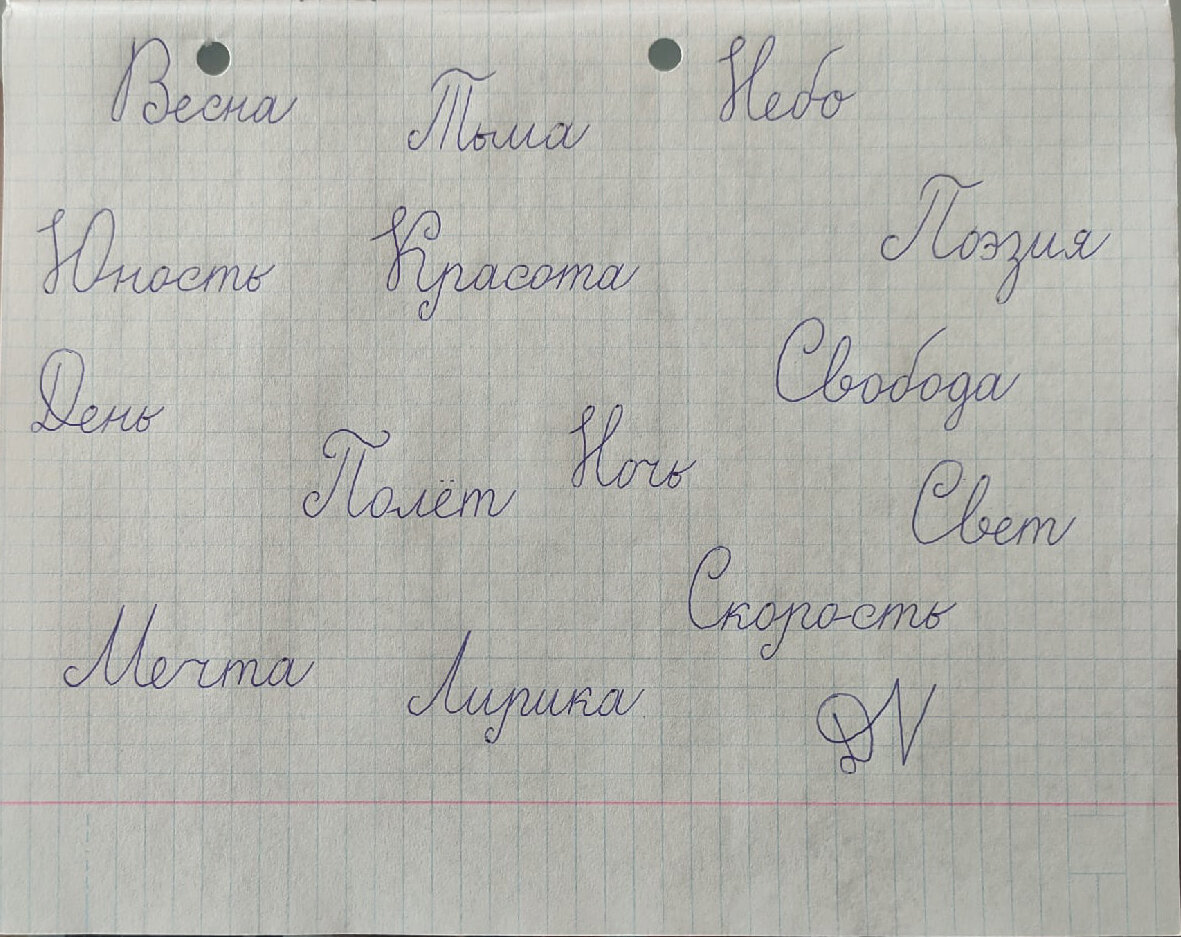 Весна
Тьма
Небо
Юность
Красота
Поэзия
День
Свобода
Полёт
Ночь
Свет
Скорость
Мечта
Лирика
DN